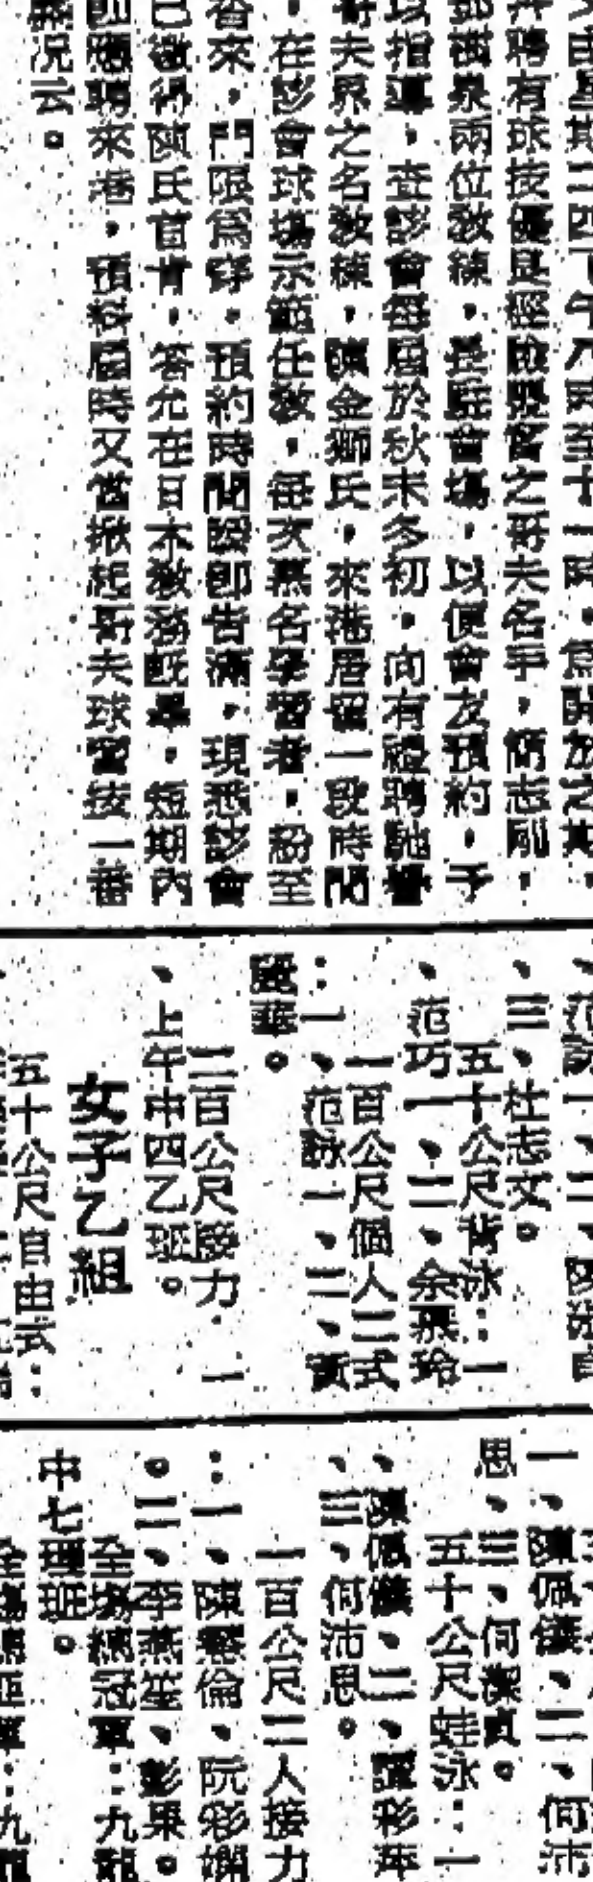 又由星期二四下午八時至十一時，為開放之期，
并聘有球技優良經驗豐富之哥夫名手，簡志剛，
鄧樹泉兩位教練，長駐會場，以便會友預約，予
以指導，查該會每屆於秋末冬初，向有禮聘馳譽
哥夫界之名教練，陳金獅氏，來港居留一段時間
，在該會球場示範任教，每次慕名學習者，紛至
沓來，門限為穿，預約時間瞬即告滿，現悉該會
已徵得陳氏首肯，答允在日本教務既畢，短期內
即應聘來港，預料屆時又當掀起哥夫球習技一番
熱況云。
、范詠一、二、陳
、三、杜志文。
五十公尺背泳：一
、范巧一、二、余佩玲
一百公尺個人二式
：一、范詠一、二、黃
麗華。
二百公尺接力 一
、上午中四乙班。
女子乙組
五十公尺自由式：
一、陳佩儀、二、何沛
思、三、何潔貞。
五十公尺蛙泳：一
、陳佩儀、二、譚彩萍
、三、何沛思。
一百公尺二人接力
：一、陳慧倫、阮彩嫻
。二、李燕笙、彭果。
全場總冠軍：九龍
中七理班。
全場總亞軍：九龍